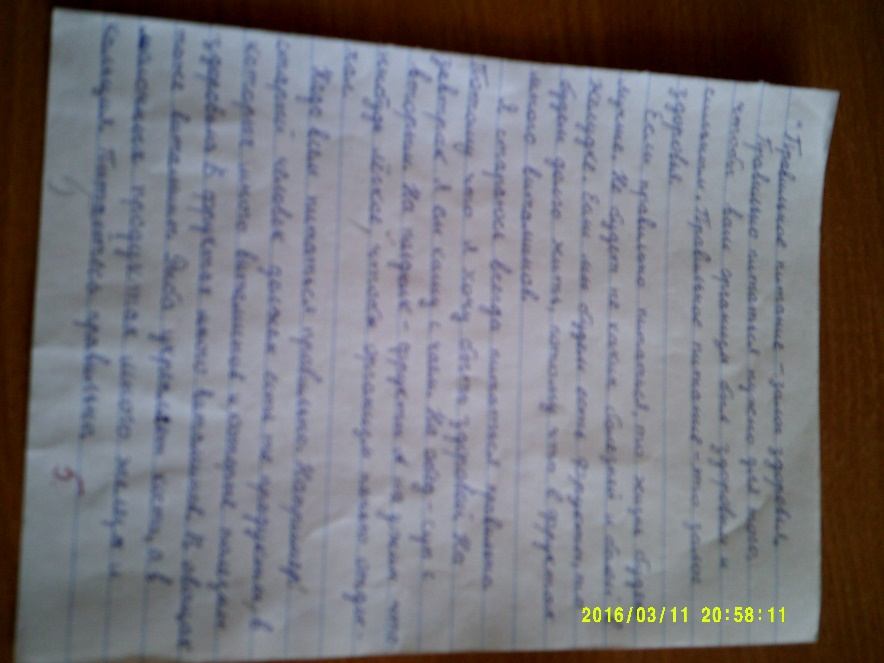 "Правильное питание - залог здоровья"
Правильно питаться нужно для того,
чтобы ваш организм был здоровым и
сильным. Правильное питание - это залог
здоровья
Если правильно питаться, то жизнь будет
лучше. Не будет не каких болезней и боли в
желудке. Если мы будем есть фрукты, мы
будем долго жить, потому что в фруктах
много витаминов
Я стараюсь всегда питаться правильно
Потому что я хочу быть здоровой. На
завтрак я ем кашу с чаем. На обед - суп с
вторым. На полдник - фрукты а на ужин что
нибудь лёгкое, чтобы организм ночью отды-
хал
Надо всем питаться правильно. Например,
старый человек должен есть те продукты, в
которых много витаминов и которые полезны
здоровью. В фруктах много витаминов. В овощах
тоже витамины. Рыба укрепляет кости, а в
молочных продуктах много железа и
кальция. Питайтесь правильно
5
2016/03/11 20:58:11